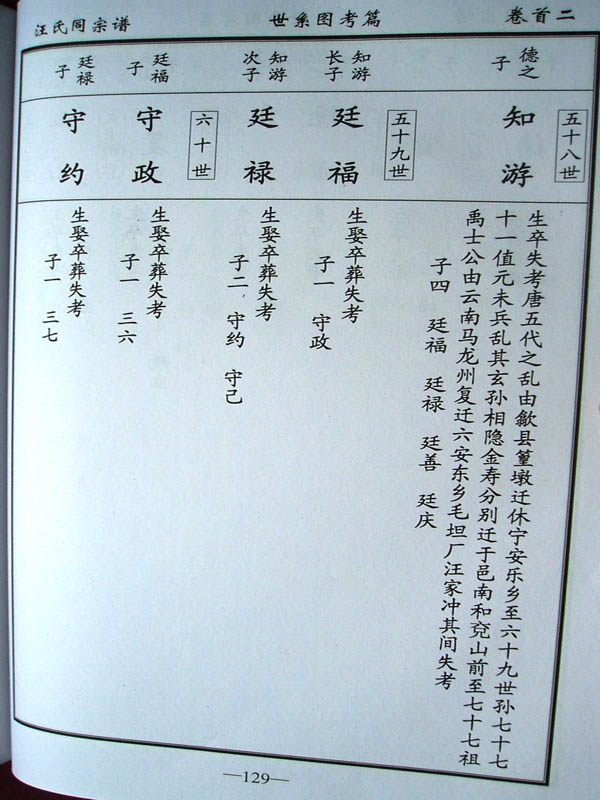 卷首二
世系图考篇
汪氏同宗谱
五十八世
德之
子
知游
生卒失考唐五代之乱由歙县篁墩迁休宁安乐乡至六十九世孙七十七
十一值元末兵乱其玄孙相隐金寿分别迁于邑南和兗山前至七十七祖
禹士公由云南马龙州复迁六安东乡毛坦厂汪家冲其间失考
子四 廷福 廷禄 廷善 廷庆
五十九世
知游
长子
廷福
生娶卒葬失考
子一 守政
知游
次子
廷禄
生娶卒葬失考
子二 守约 守己
六十世
廷福
子
守政
生娶卒葬失考
子一 三六
廷禄
子
守约
生娶卒葬失考
子一 三七
—129—